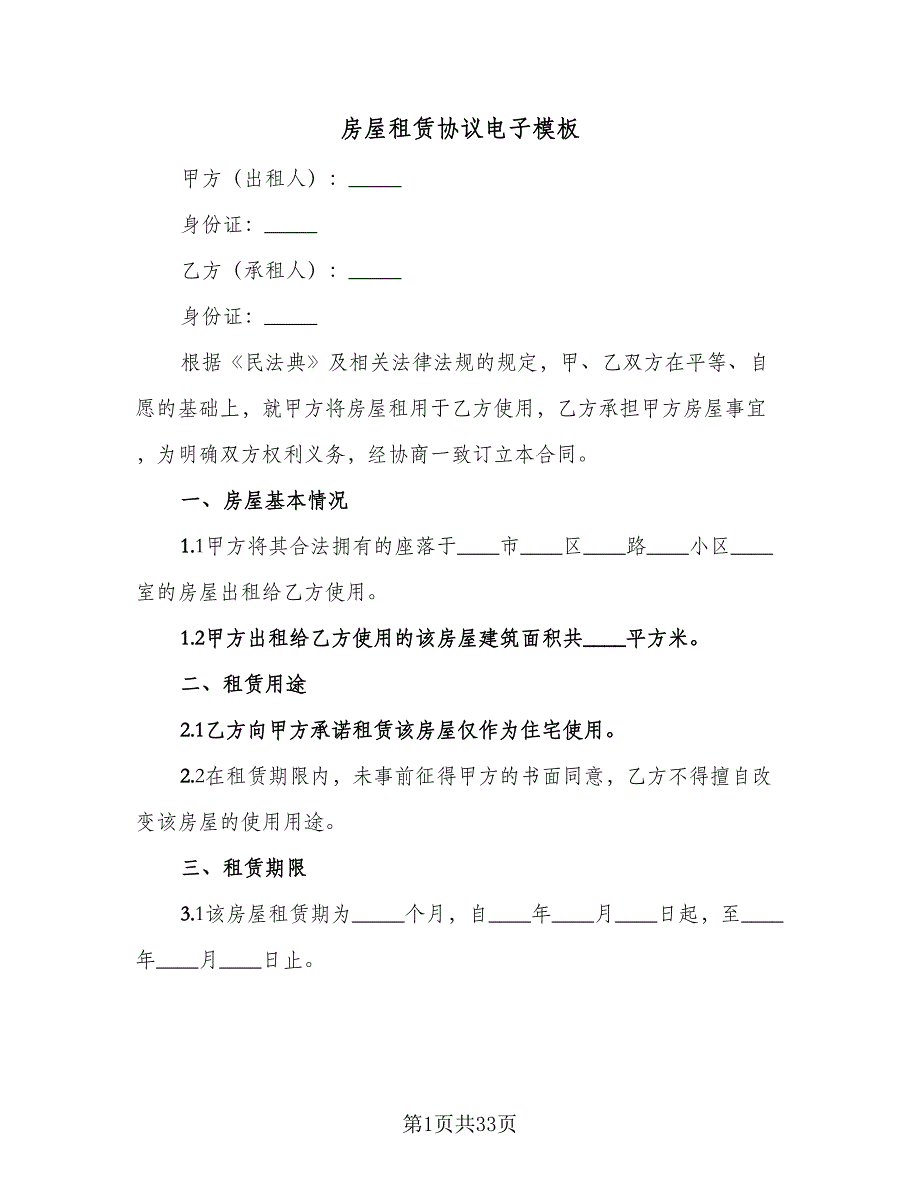 房屋租赁协议电子模板
甲方（出租人）：_____
身份证：_____
乙方（承租人）：_____
身份证：_____
根据《民法典》及相关法律法规的规定，甲、乙双方在平等、自
愿的基础上，就甲方将房屋租用于乙方使用，乙方承担甲方房屋事宜
，为明确双方权利义务，经协商一致订立本合同。
一、房屋基本情况
1.1甲方将其合法拥有的座落于____市____区____路____小区____
室的房屋出租给乙方使用。
1.2甲方出租给乙方使用的该房屋建筑面积共____平方米。
二、租赁用途
2.1乙方向甲方承诺租赁该房屋仅作为住宅使用。
2.2在租赁期限内，未事前征得甲方的书面同意，乙方不得擅自改
变该房屋的使用用途。
三、租赁期限
3.1该房屋租赁期为_____个月，自____年____月____日起，至____
年____月____日止。
第1页共33页